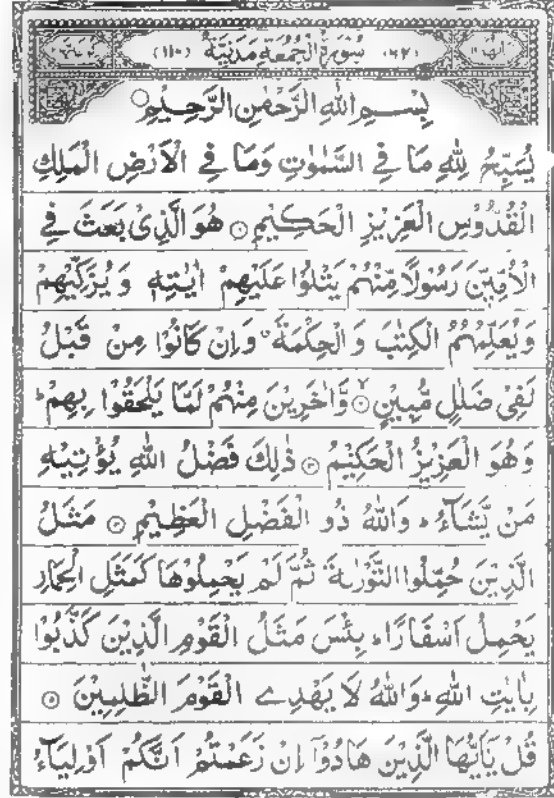 (٦٢) سُوْرَةُ الْجُمُعَةِ مَدَنِيَّةٌ (١١٠)
بِسْمِ اللهِ الرَّحْمٰنِ الرَّحِيْمِ ○
يُسَبِّحُ لِلّٰهِ مَا فِي السَّمٰوٰتِ وَمَا فِي الْاَرْضِ الْمَلِكِ
الْقُدُّوْسِ الْعَزِيْزِ الْحَكِيْمِ ۝١ هُوَ الَّذِيْ بَعَثَ فِي
الْاُمِّيّٖنَ رَسُوْلًا مِّنْهُمْ يَتْلُوْا عَلَيْهِمْ اٰيٰتِهٖ وَيُزَكِّيْهِمْ
وَيُعَلِّمُهُمُ الْكِتٰبَ وَالْحِكْمَةَ ۗ وَاِنْ كَانُوْا مِنْ قَبْلُ
لَفِيْ ضَلٰلٍ مُّبِيْنٍ ۝٢ وَّاٰخَرِيْنَ مِنْهُمْ لَمَّا يَلْحَقُوْا بِهِمْ ؕ
وَهُوَ الْعَزِيْزُ الْحَكِيْمُ ۝٣ ذٰلِكَ فَضْلُ اللهِ يُؤْتِيْهِ
مَنْ يَّشَآءُ ؕ وَاللهُ ذُو الْفَضْلِ الْعَظِيْمِ ۝٤ مَثَلُ
الَّذِيْنَ حُمِّلُوا التَّوْرٰىةَ ثُمَّ لَمْ يَحْمِلُوْهَا كَمَثَلِ الْحِمَارِ
يَحْمِلُ اَسْفَارًا ؕ بِئْسَ مَثَلُ الْقَوْمِ الَّذِيْنَ كَذَّبُوْا
بِاٰيٰتِ اللهِ ؕ وَاللهُ لَا يَهْدِے الْقَوْمَ الظّٰلِمِيْنَ ۝٥
قُلْ يٰۤاَيُّهَا الَّذِيْنَ هَادُوْۤا اِنْ زَعَمْتُمْ اَنَّكُمْ اَوْلِيَآءُ